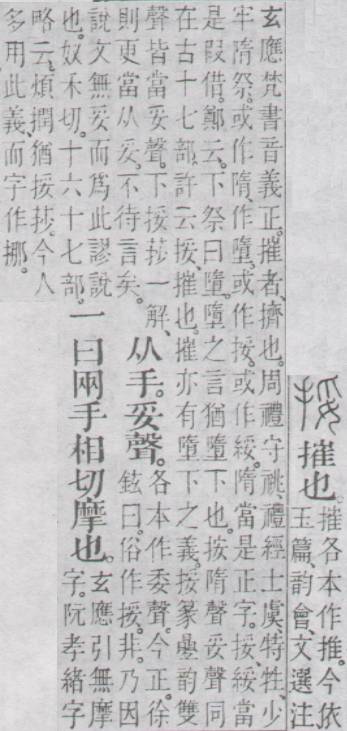 挼 摧也。
摧各本作推。今依
玉篇、韵會、文選注
玄應梵書音義正。摧者、擠也。周禮守祧、禮經士虞、特牲、少
牢隋祭。或作隋、作墮。或作挼、或作綏。隋當是正字。挼、綏當
是叚借。鄭云。下祭曰墮。墮之言猶墮下也。按隋聲妥聲同
在古十七部。許云挼、摧也。摧亦有墮下之義。挼篆疊韵雙
聲皆當妥聲。下挼莎一解、
則更當从妥、不待言矣。
从手。妥聲。
各本作委聲。今正。徐
鉉曰。俗作挼。非。乃因
說文無妥而爲此謬說
也。奴禾切。十六十七部。
一曰兩手相切摩也。
玄應引無摩
字。阮孝緒字
略云。煩撋猶挼莎。今人
多用此義而字作挪。